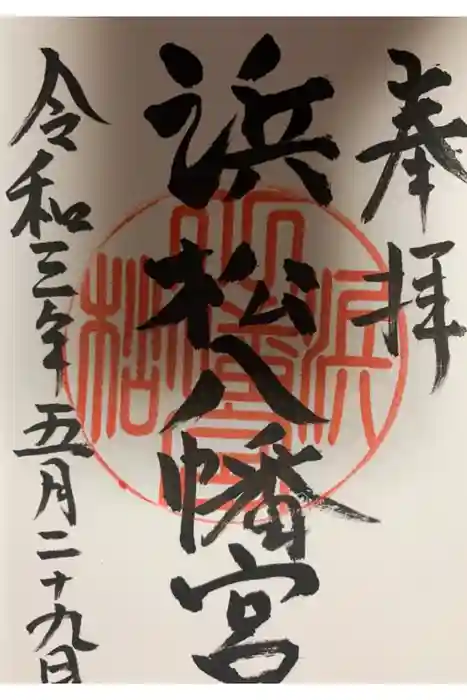 奉拝
浜松八幡宮
令和三年五月二十九日
浜松
八幡宮